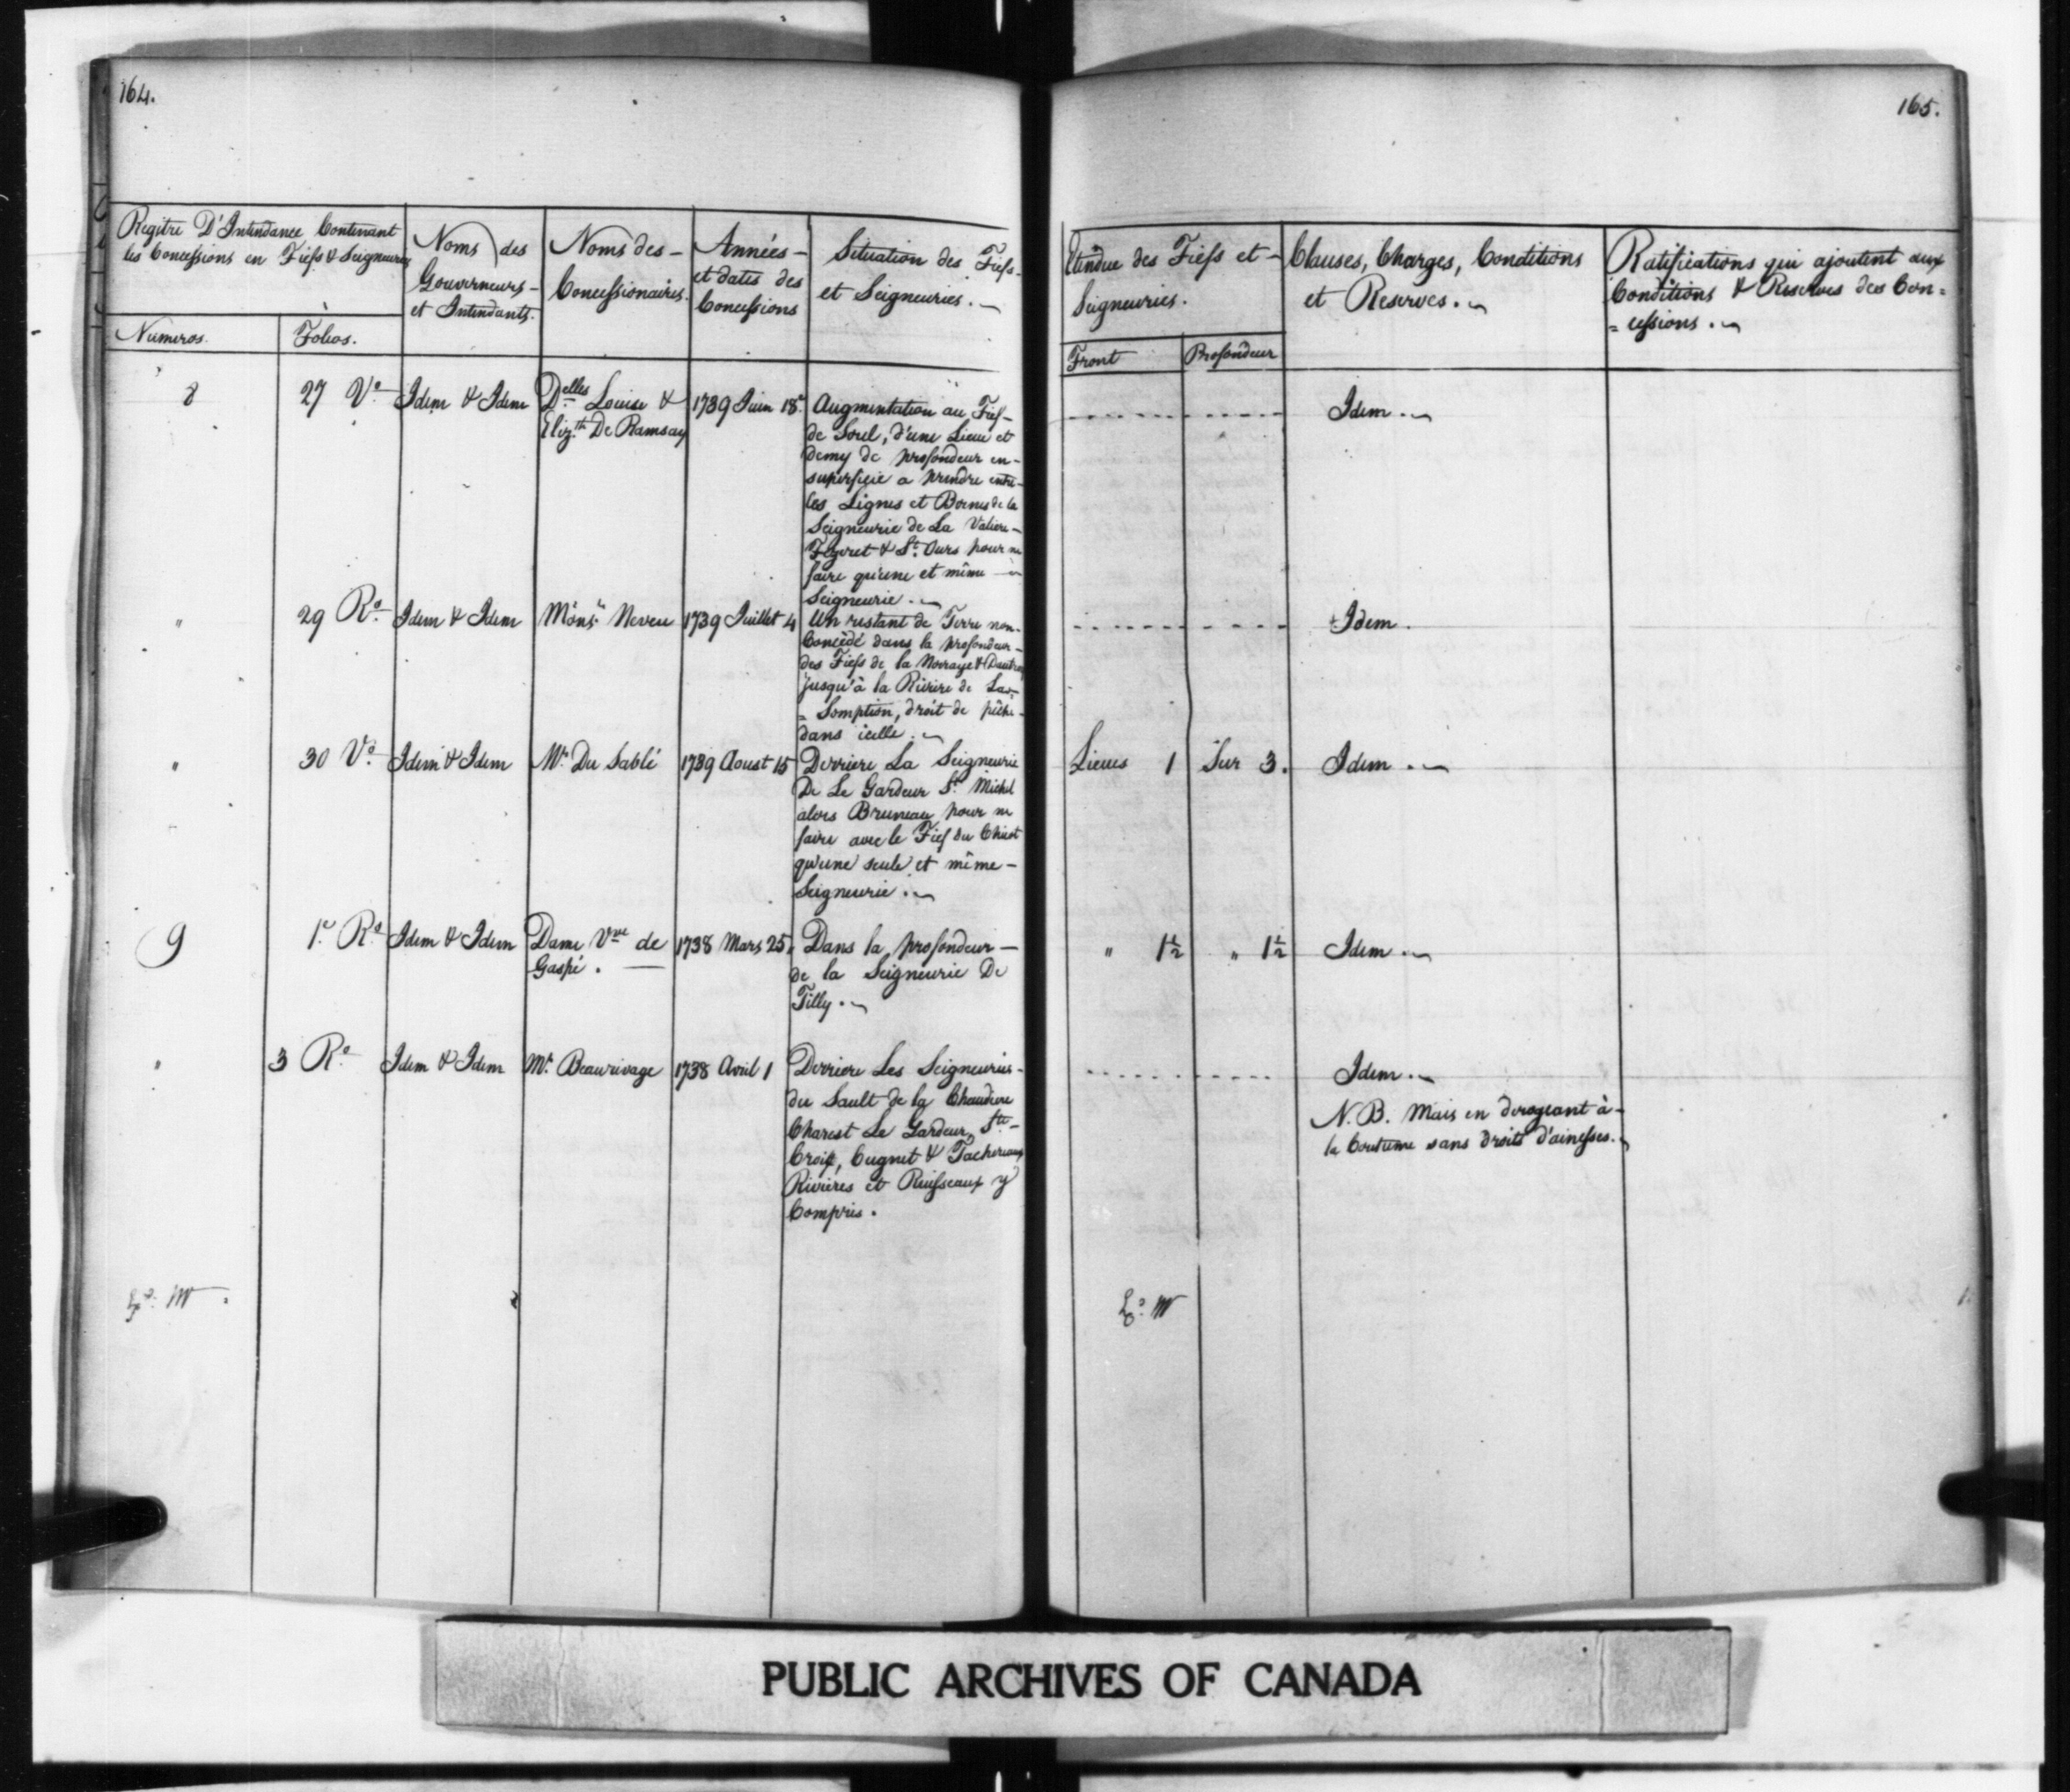 164.
Regître D'Intendance Contenant
les Concessions en Fiefs & Seigneuries
Numeros.
Folios.
Noms des
Gouverneurs
et Intendants.
Noms des
Concessionaires.
Années
et dates des
Concessions
Situation des Fiefs
et Seigneuries.
8
27 Vo.
Idem & Idem
Delles Louise &
Elizth. De Ramsay
1739 Juin 18
Augmentation au Fief
de Sorel, d'une Lieue et
demy de profondeur en
superficie a prendre entre
les Lignes et Bornes de la
Seigneurie de La Valiere
& St. Ours pour ne
faire qu'une et même
Seigneurie.
"
29 Ro.
Idem & Idem
Monsr. Neveu
1739 Juillet 4
Un restant de Terre non
Concédé dans la profondeur
des Fiefs de la Noraye & Dautré
jusqu'à la Riviere de Las=
=Somption, droit de pêche
dans icelle.
"
30 Vo.
Idem & Idem
Mr. Du Sablé
1739 Aoust 15
Derriere La Seigneurie
De Le Gardeur St. Michel
alors Bruneau, pour ne
faire avec le Fief du Chicot
qu'une seule et même
Seigneurie.
9
1r. Ro.
Idem & Idem
Dame Vve de
Gaspé.
1738 Mars 25
Dans la profondeur
de la Seigneurie De
Tilly.
"
3 Ro.
Idem & Idem
Mr. Beaurivage
1738 Avril 1
Derriere Les Seigneuries
du Sault de la Chaudiere
Charest Le Gardeur, Ste
Croix, Cugnet & Tachereaux
Rivières et Ruisseaux y
Compris.
165.
Etendue des Fiefs et
Seigneuries.
Front
Profondeur
Clauses, Charges, Conditions
et Reserves.
Ratifications qui ajoutent aux
Conditions & Reserves des Con=
=cessions.
Idem.
Idem.
Lieues 1
Sur 3.
Idem.
" 1½
" 1½
Idem.
Idem.
N.B. Mais en derogeant à
la Coutume sans droits d'ainesses.
PUBLIC ARCHIVES OF CANADA